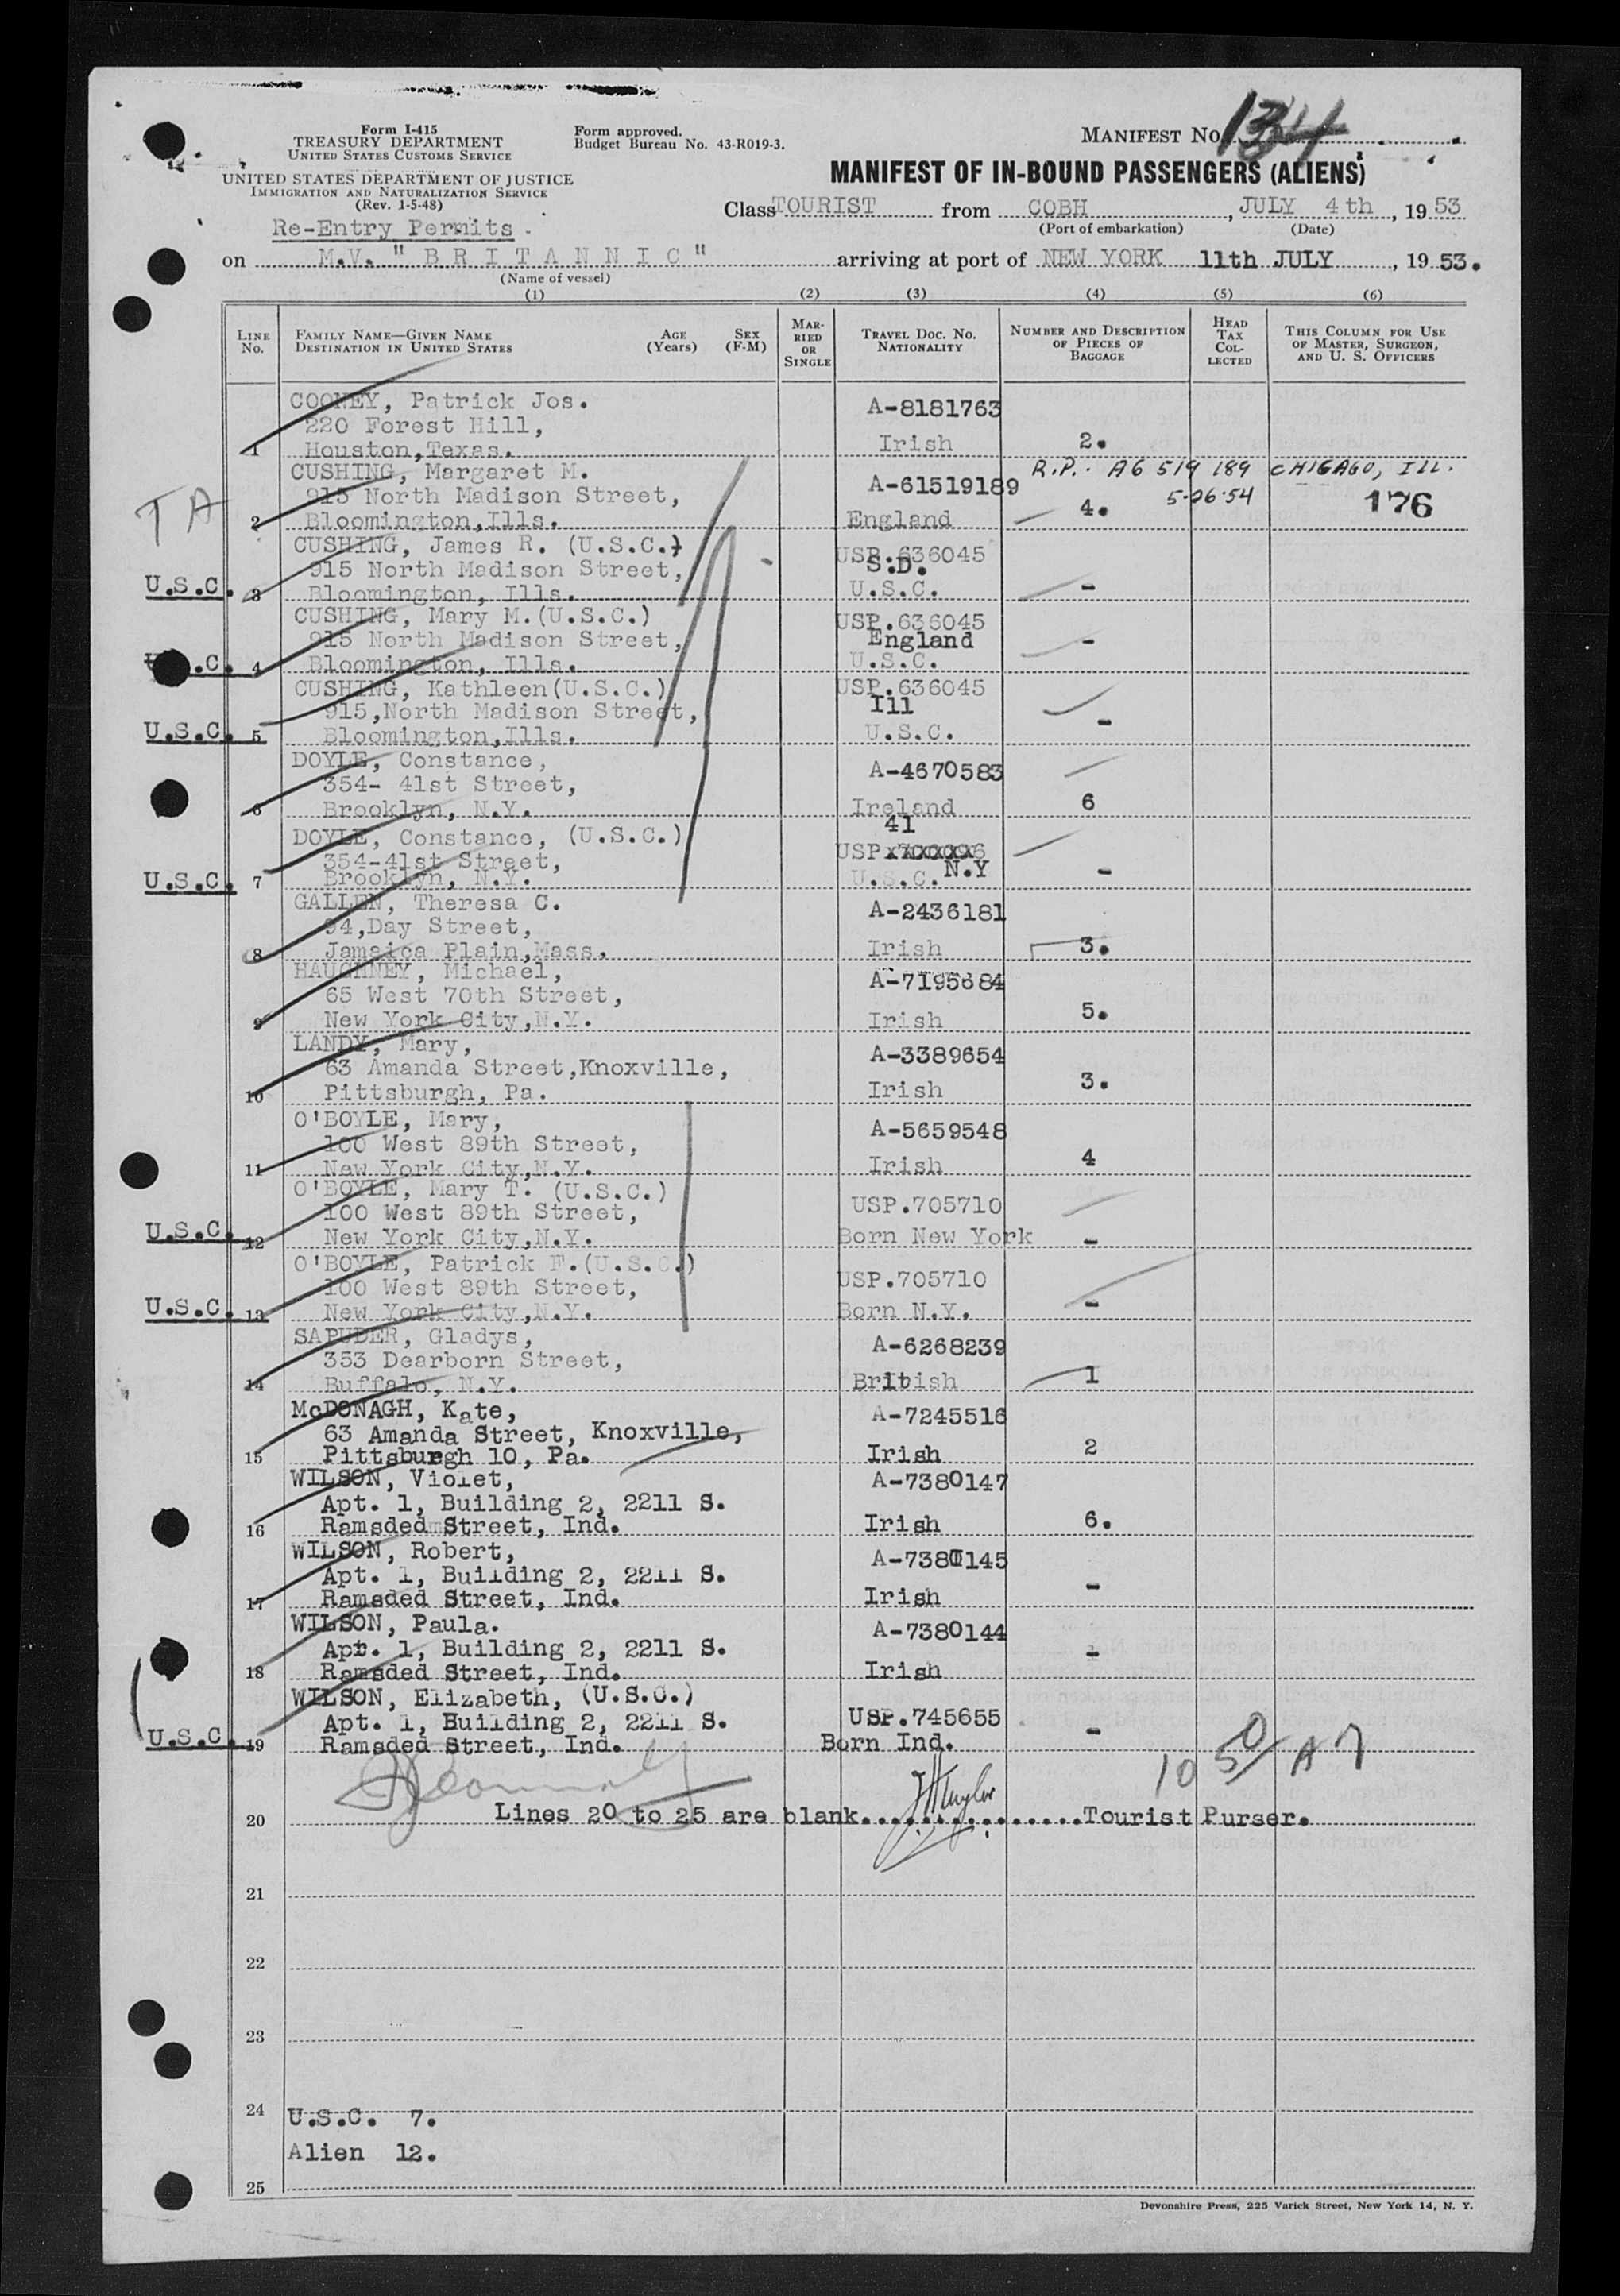 Form I-415
TREASURY DEPARTMENT
UNITED STATES CUSTOMS SERVICE
UNITED STATES DEPARTMENT OF JUSTICE
IMMIGRATION AND NATURALIZATION SERVICE
(Rev. 1-5-48)
Form approved.
Budget Bureau No. 43-R019-3.
MANIFEST No. 134
MANIFEST OF IN-BOUND PASSENGERS (ALIENS)
Class TOURIST from COBH, JULY 4th, 1953
(Port of embarkation) (Date)
Re-Entry Permits.
on M.V. "BRITANNIC" arriving at port of NEW YORK 11th JULY, 1953.
(Name of vessel)
(1) (2) (3) (4) (5) (6)
LINE No.
FAMILY NAME—GIVEN NAME
DESTINATION IN UNITED STATES
AGE (Years)
SEX (F-M)
MARRIED OR SINGLE
TRAVEL DOC. No.
NATIONALITY
NUMBER AND DESCRIPTION OF PIECES OF BAGGAGE
HEAD TAX COLLECTED
THIS COLUMN FOR USE OF MASTER, SURGEON, AND U. S. OFFICERS
COONEY, Patrick Jos. A-8181763
220 Forest Hill,
1 Houston,Texas. Irish 2.
CUSHING, Margaret M. R.P. A6 519 189 CHICAGO, ILL.
T A 915 North Madison Street, A-61519189 5-26-54
2 Bloomington,Ills. England 4. 176
CUSHING, James R. (U.S.C.) USP.636045
915 North Madison Street, S.D.
U.S.C. 3 Bloomington, Ills. U.S.C. -
CUSHING, Mary M.(U.S.C.) USP.636045
915 North Madison Street, England
U.S.C. 4 Bloomington, Ills. U.S.C. -
CUSHING, Kathleen(U.S.C.) USP.636045
915,North Madison Street, Ill
U.S.C. 5 Bloomington,Ills. U.S.C. -
DOYLE, Constance, A-4670583
354- 41st Street,
6 Brooklyn, N.Y. Ireland 6
DOYLE, Constance, (U.S.C.) 41
354-41st Street, USP
U.S.C. 7 Brooklyn, N.Y. U.S.C. N.Y -
GALLEN, Theresa C. A-2436181
94,Day Street,
8 Jamaica Plain,Mass. Irish 3.
HAUGHNEY, Michael, A-7195684
65 West 70th Street,
9 New York City,N.Y. Irish 5.
LANDY, Mary, A-3389654
63 Amanda Street,Knoxville,
10 Pittsburgh, Pa. Irish 3.
O'BOYLE, Mary, A-5659548
100 West 89th Street,
11 New York City,N.Y. Irish 4
O'BOYLE, Mary T. (U.S.C.) USP.705710
100 West 89th Street,
U.S.C. 12 New York City,N.Y. Born New York -
O'BOYLE, Patrick F.(U.S.C.) USP.705710
100 West 89th Street,
U.S.C. 13 New York City,N.Y. Born N.Y. -
SAPUDER, Gladys, A-6268239
353 Dearborn Street,
14 Buffalo, N.Y. British 1
McDONAGH, Kate, A-7245516
63 Amanda Street, Knoxville,
15 Pittsburgh 10, Pa. Irish 2
WILSON, Violet, A-7380147
Apt. 1, Building 2, 2211 S.
16 Ramsded Street, Ind. Irish 6.
WILSON, Robert, A-7380145
Apt. 1, Building 2, 2211 S.
17 Ramsded Street, Ind. Irish -
WILSON, Paula. A-7380144
Apt. 1, Building 2, 2211 S.
18 Ramsded Street, Ind. Irish -
WILSON, Elizabeth, (U.S.C.) USP.745655
Apt. 1, Building 2, 2211 S.
U.S.C. 19 Ramsded Street, Ind. Born Ind. -
10 50/ A 7
20 Lines 20 to 25 are blank................Tourist Purser.
21
22
23
24 U.S.C. 7.
Alien 12.
25
Devonshire Press, 225 Varick Street, New York 14, N. Y.